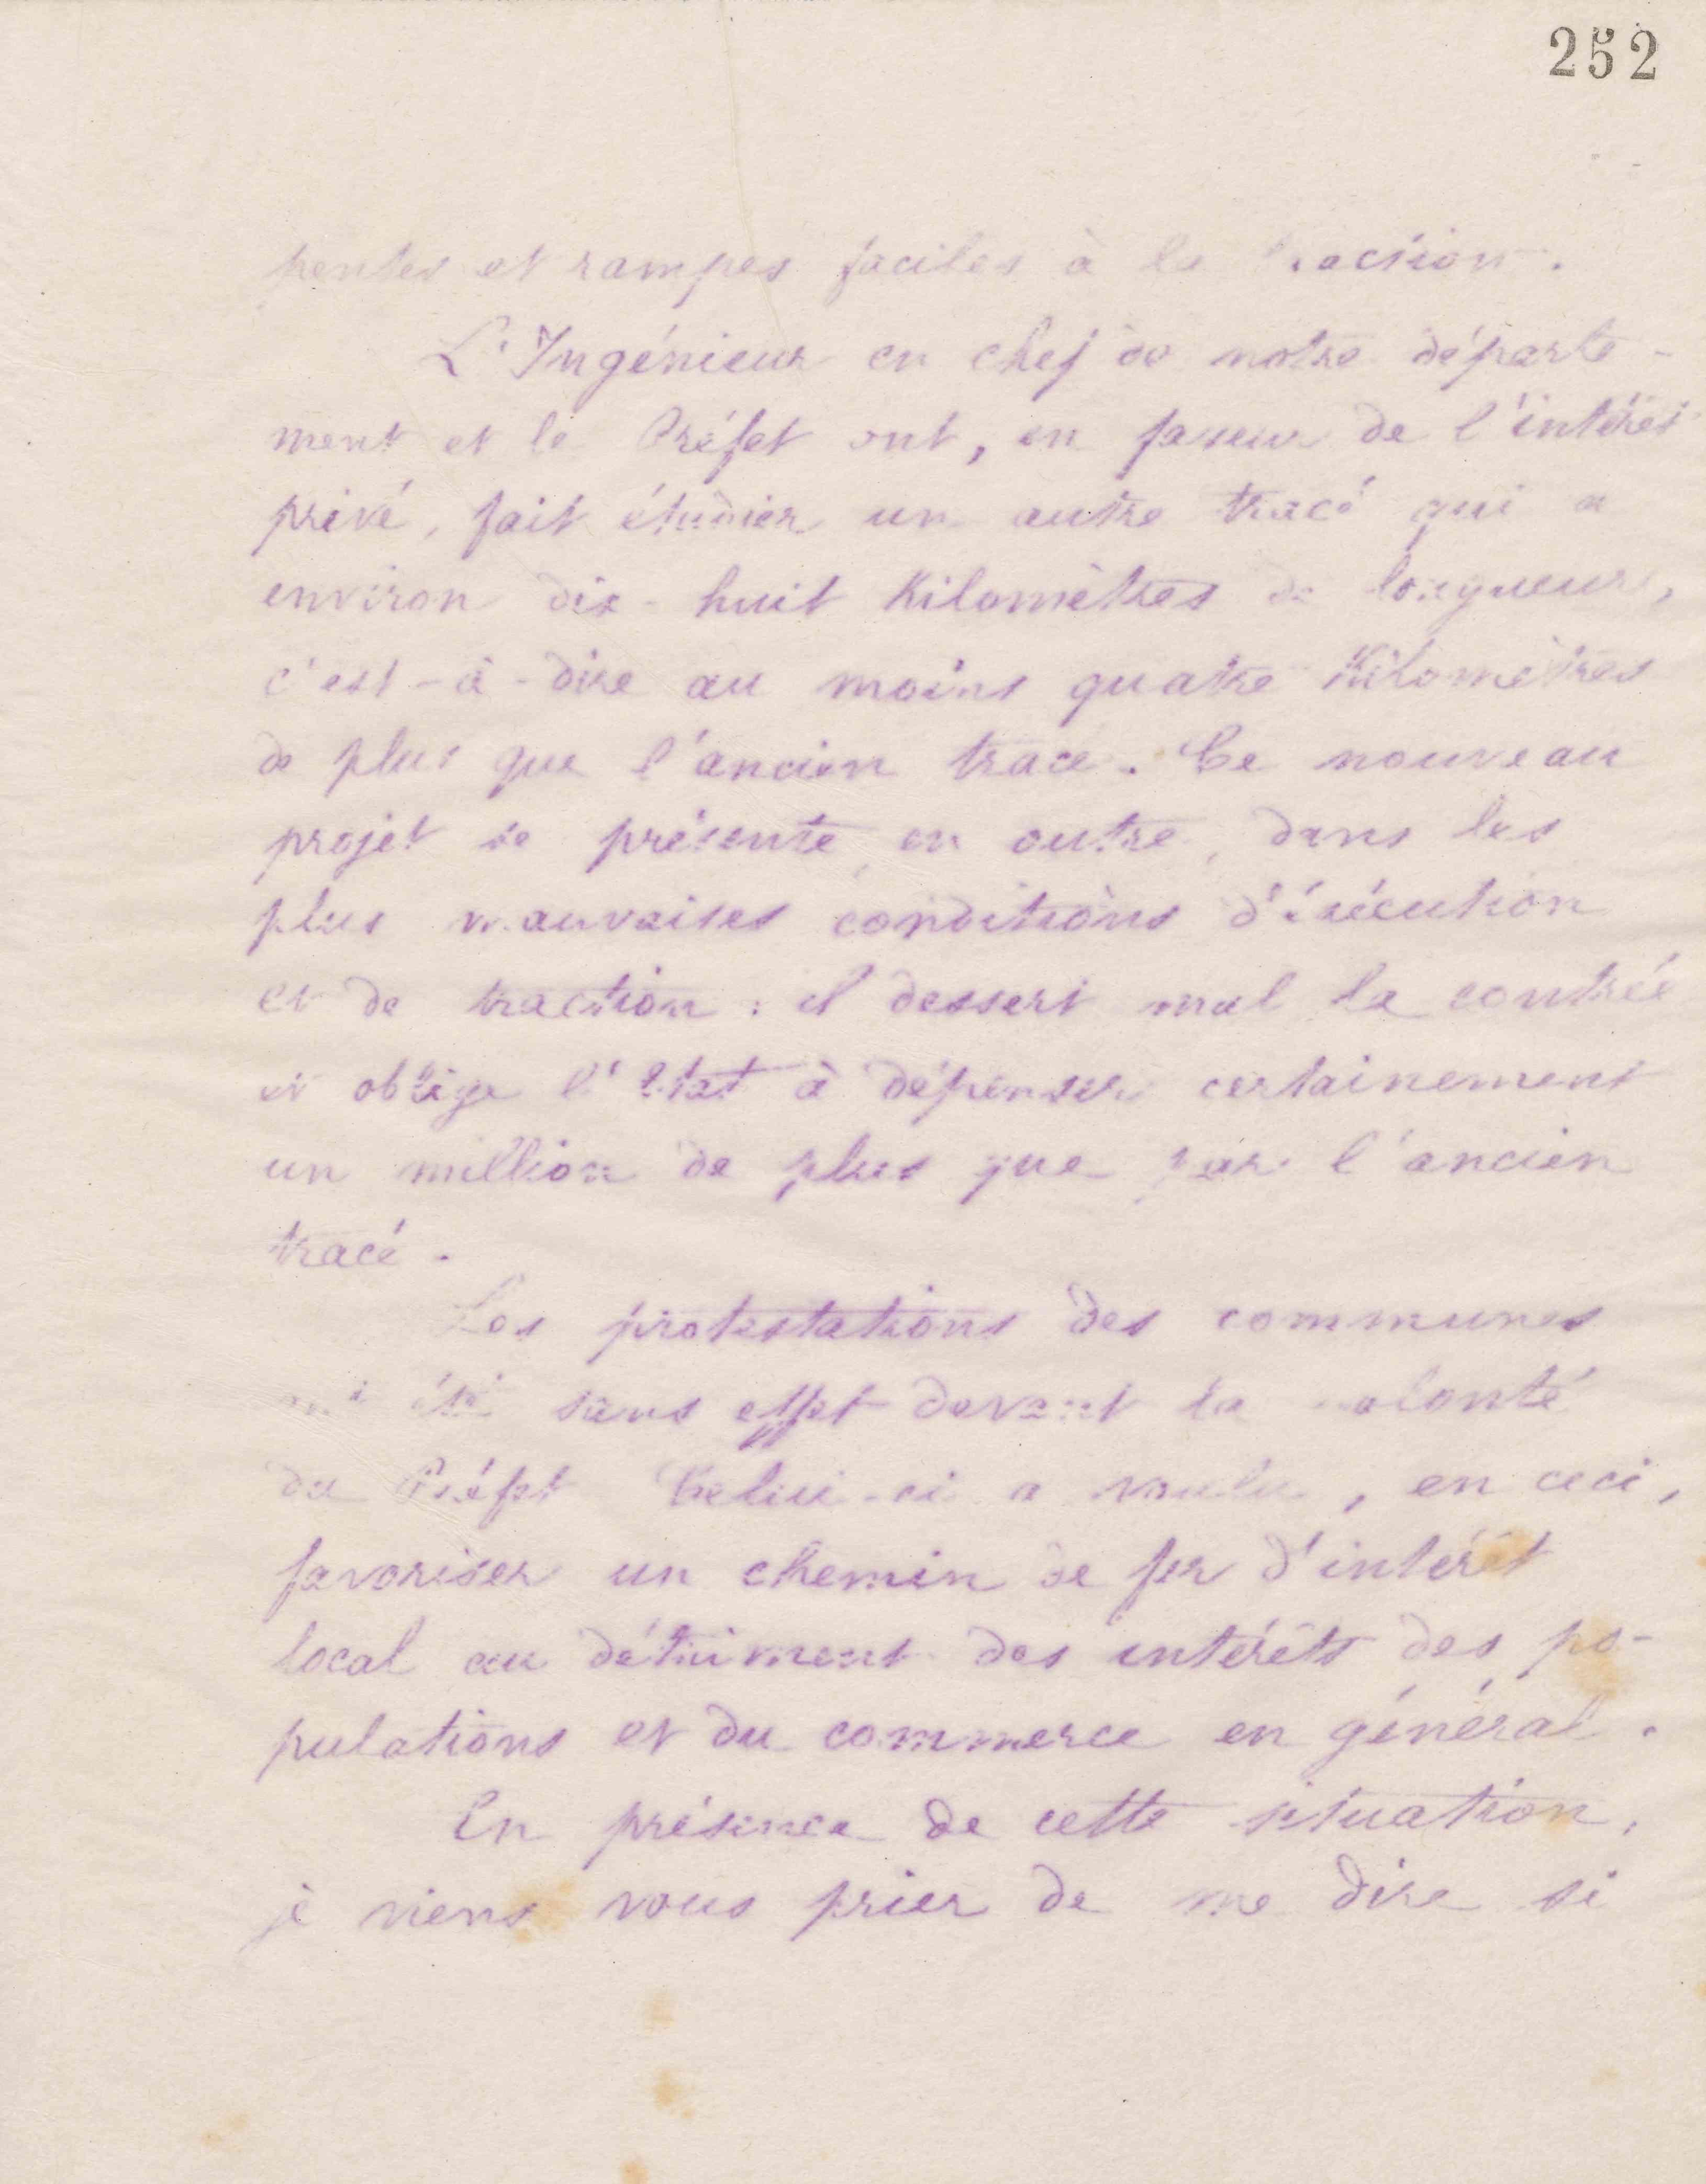 252
pentes et rampes faciles à la traction.
L'Ingénieur en chef de notre départe-
ment et le Préfet ont, en faveur de l'intérêt
privé, fait étudier un autre tracé qui a
environ dix-huit Kilomètres de longueur,
c'est-à-dire au moins quatre Kilomètres
de plus que l'ancien tracé. Ce nouveau
projet se présente, en outre, dans les
plus mauvaises conditions d'éxécution
et de traction : il dessert mal la contrée
et oblige l'Etat à dépenser certainement
un million de plus que par l'ancien
tracé.
Les protestations des communes
ont été sans effet devant la volonté
du Préfet. Celui-ci a voulu, en ceci,
favoriser un chemin de fer d'intérêt
local au détriment des intérêts des po-
pulations et du commerce en général.
En présence de cette situation,
je viens vous prier de me dire si